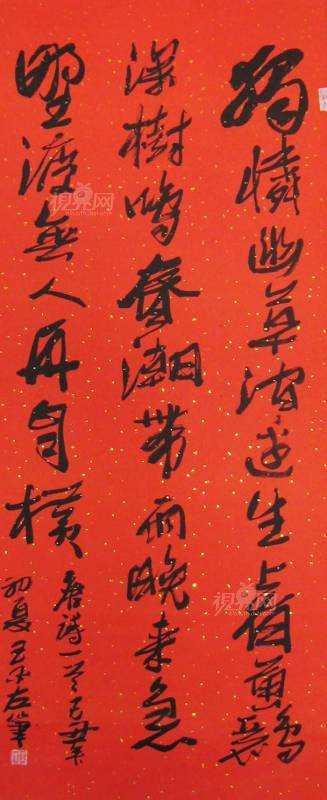 獨憐幽草澗邊生上有黄鸝
深樹鳴春潮帶雨晚来急
野渡無人舟自横
唐詩一首己丑年
初夏王左筆
視界网
視界网